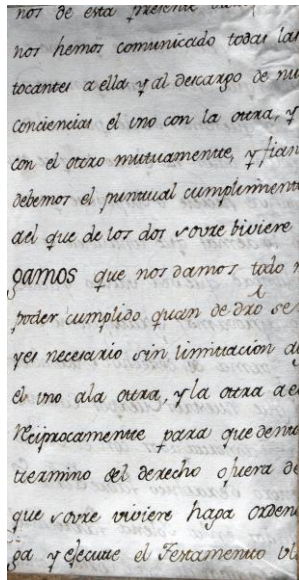 nos de esta presente
nos hemos comunicado todas las
tocantes a ella y al descargo de nu
conciencias el vno con la otra, y
con el otro mutuamente, y fian
debemos el puntual cumplimient
del que de los dos sovre biviere
gamos que nos damos todo n
poder cumplido quan de dro se
yes necesario sin limitacion al
el vno ala otra, y la otra a el
Reciprocamente para que dentro
termino del derecho o fuera de
que sovre viviere haga orden
ga y ejecute el Testamento